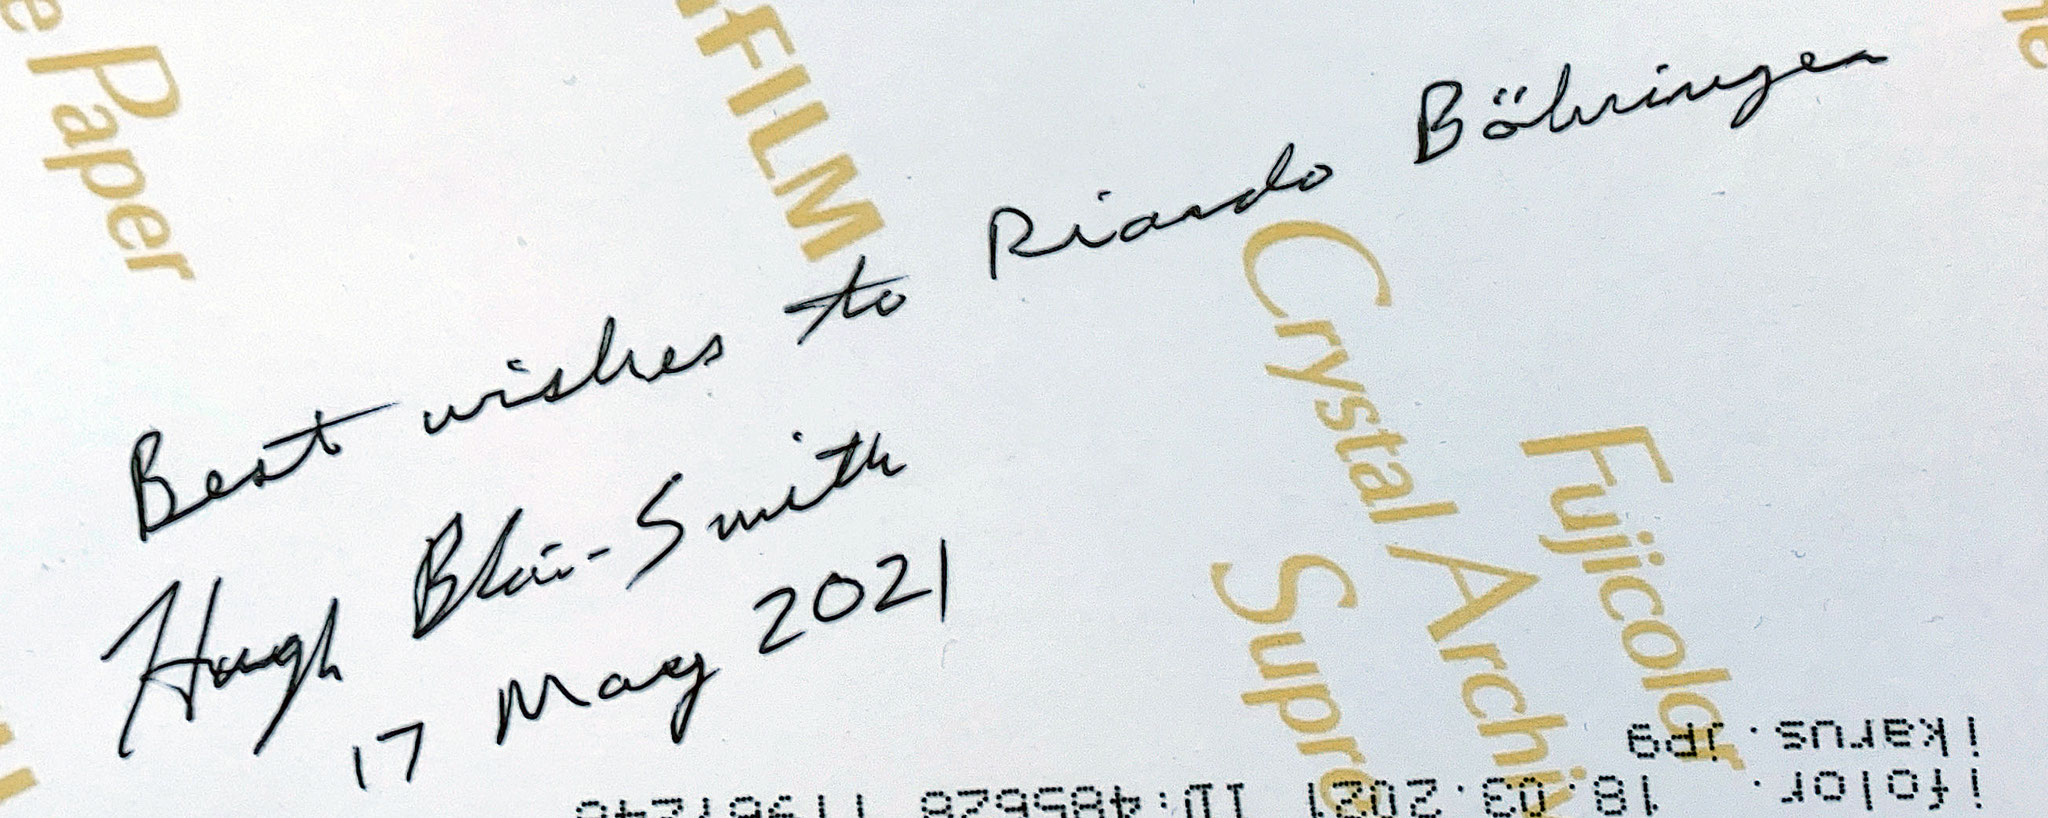 Best wishes to Riardo Böhringen
Hugh Blair-Smith
17 May 2021
e Paper
FILM
Crystal Archiv
Fujicolor
Supre
ikarus.jpg
ifolor. 18.03.2021 ID:4856628